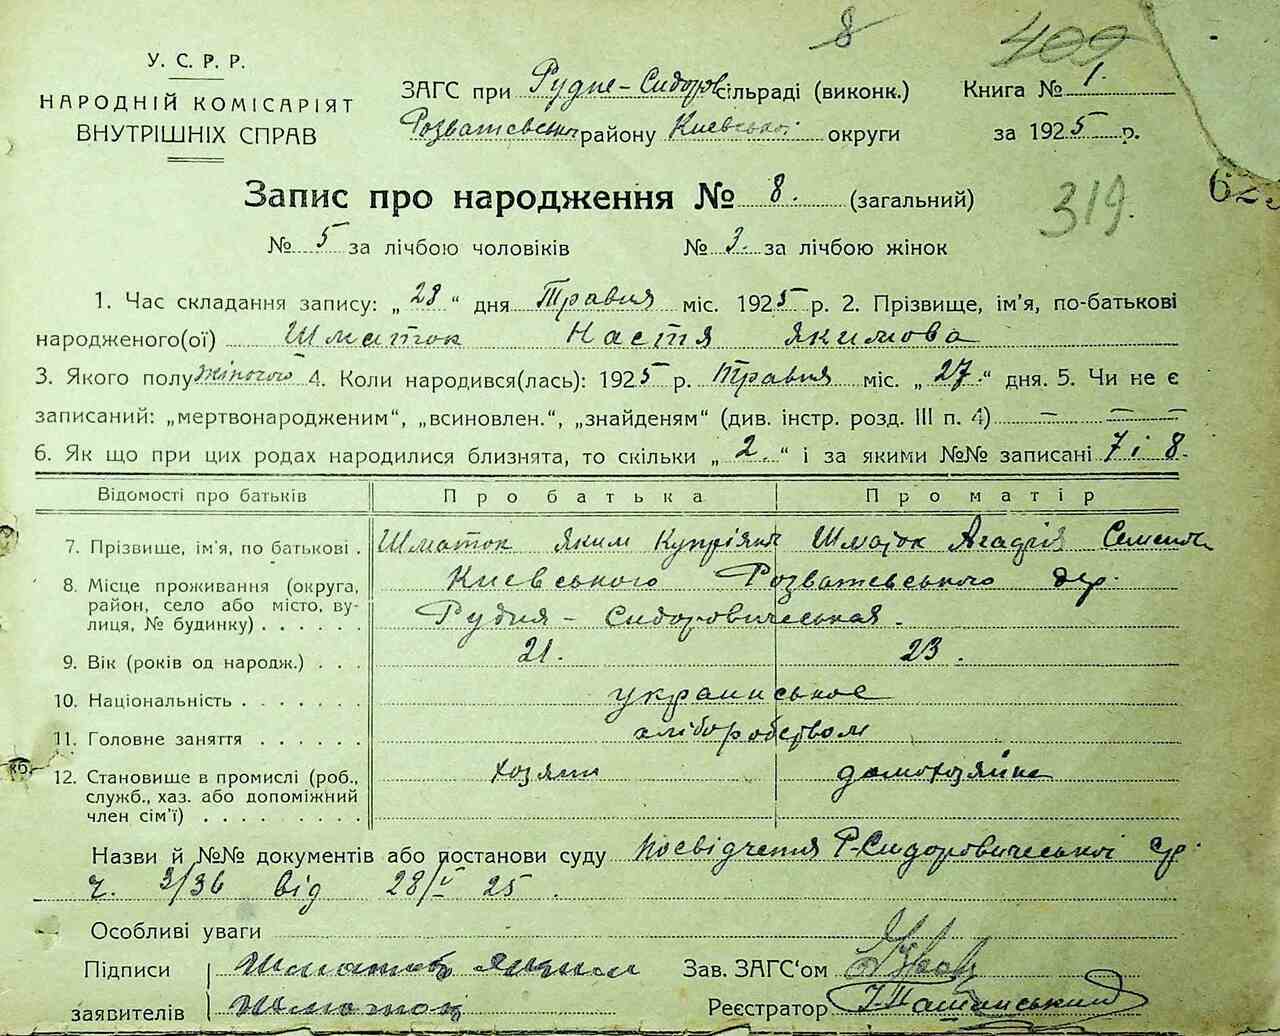 8
409
У. С. Р. Р.
НАРОДНІЙ КОМІСАРІЯТ
ВНУТРІШНІХ СПРАВ
ЗАГС при Рудне-Сидоров сільраді (виконк.) Книга № 1.
Розватевськ району Киевської округи за 1925 р.
623
Запис про народження № 8. (загальний)
319.
№ 5 за лічбою чоловіків № 3. за лічбою жінок
1. Час складання запису: „28“ дня Травня міс. 1925 р. 2. Прізвище, ім’я, по-батькові
народженого(ої) Шматок Настя Якимова
3. Якого полу жіночого 4. Коли народився(лась): 1925 р. Травня міс. „27“ дня. 5. Чи не є
записаний: „мертвонародженим“, „всиновлен.“, „знайденям“ (див. інстр. розд. III п. 4) — — —
6. Як що при цих родах народилися близнята, то скільки „2.“ і за якими №№ записані 7 і 8.
Відомості про батьків Про батька Про матір
7. Прізвище, ім’я, по батькові . Шматок Яким Купріян Шматок Агафія Семенов
8. Місце проживання (округа, район, село або місто, вулиця, № будинку) . . . . . . Киевського Розватевського дер.
Рудня - Сидоровическая.
9. Вік (років од народж.) . . . 21. 23.
10. Національність . . . . . . . украинськое
11. Головне заняття . . . . . . хліборобством
12. Становище в промислі (роб., служб., хаз. або допоміжний член сім’ї) . . . . . . . . . хозяин домохозяйка
Назви й №№ документів або постанови суду посвідчення Р-Сидоровичеської ср
ч. 3/36 від 28/V 25.
Особливі уваги
Підписи Шматок Яким Зав. ЗАГС‘ом
заявителів Шматок Реєстратор